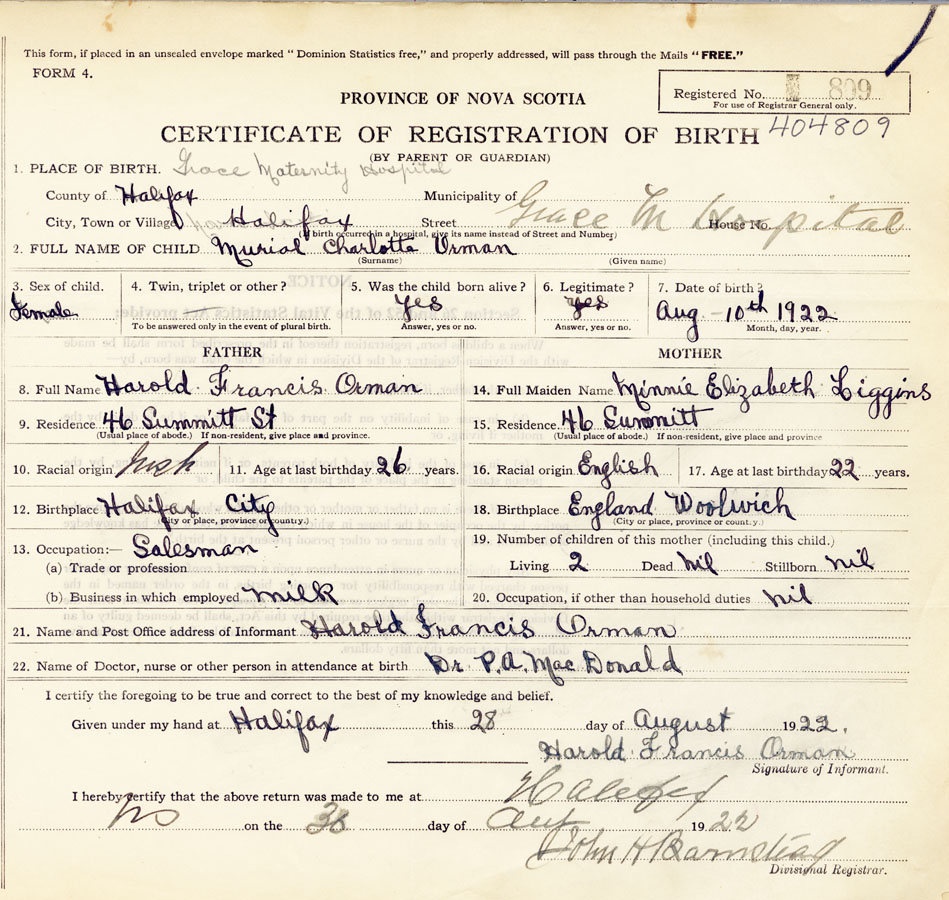 This form, if placed in an unsealed envelope marked "Dominion Statistics free," and properly addressed, will pass through the Mails "FREE."
FORM 4.
Registered No. 809
For use of Registrar General only.
PROVINCE OF NOVA SCOTIA
404809
CERTIFICATE OF REGISTRATION OF BIRTH
(BY PARENT OR GUARDIAN)
1. PLACE OF BIRTH. Grace Maternity Hospital
County of Halifax Municipality of
City, Town or Village Halifax Street Grace M Hospital House No.
(If birth occurred in a hospital, give its name instead of Street and Number)
2. FULL NAME OF CHILD Murial Charlotte Orman
(Surname) (Given name)
3. Sex of child. 4. Twin, triplet or other? 5. Was the child born alive? 6. Legitimate? 7. Date of birth?
Female yes yes Aug - 10th 1922
To be answered only in the event of plural birth. Answer, yes or no. Answer, yes or no. Month, day, year.
FATHER MOTHER
8. Full Name Harold Francis Orman 14. Full Maiden Name Minnie Elizabeth Liggins
9. Residence 46 Summitt St 15. Residence 46 Summitt
(Usual place of abode.) If non-resident, give place and province. (Usual place of abode.) If non-resident, give place and province
10. Racial origin Irish 11. Age at last birthday 26 years. 16. Racial origin English 17. Age at last birthday 22 years.
12. Birthplace Halifax City 18. Birthplace England Woolwich
(City or place, province or country.) (City or place, province or country.)
13. Occupation:— Salesman 19. Number of children of this mother (including this child.)
(a) Trade or profession Living 2 Dead nil Stillborn nil
(b) Business in which employed milk 20. Occupation, if other than household duties nil
21. Name and Post Office address of Informant Harold Francis Orman
22. Name of Doctor, nurse or other person in attendance at birth Dr P.A. MacDonald
I certify the foregoing to be true and correct to the best of my knowledge and belief.
Given under my hand at Halifax this 28 day of August 1922.
Harold Francis Orman
Signature of Informant.
I hereby certify that the above return was made to me at Halifax
NS on the 30 day of Aug 1922
John H Barnstead
Divisional Registrar.